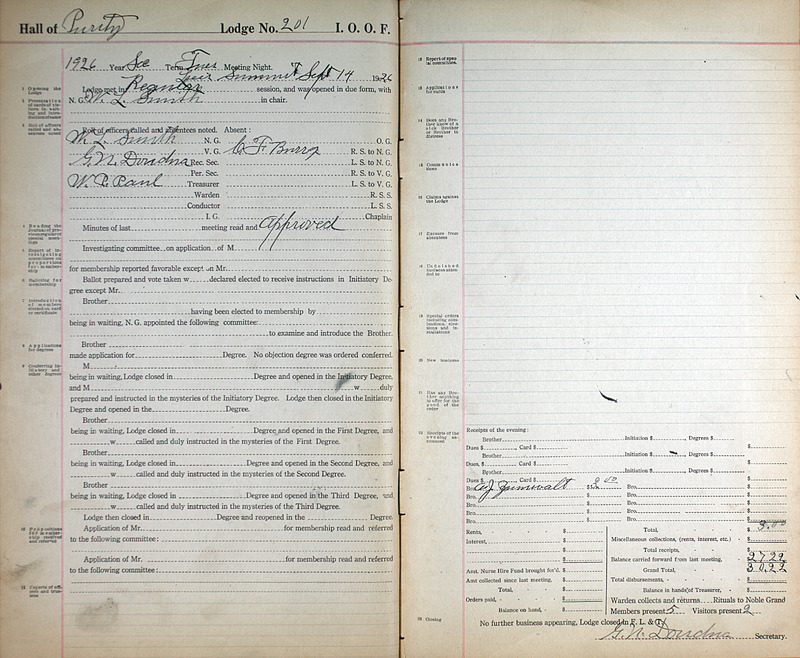 Hall of Purity Lodge No. 201 I. O. O. F.
1926 Year Sec Term Tues Meeting Night.
Lee's Summit Sept 14 1926
Lodge met in Regular session, and was opened in due form, with
N. G. W. L. Smith in chair.
Roll of officers called and absentees noted. Absent:
M L Smith N. G. O. G.
V. G. C. F. Burry R. S. to N. G.
G. N. Doudna Rec. Sec. L. S. to N. G.
Per. Sec. R. S. to V. G.
W. P. Paul Treasurer L. S. to V. G.
Warden R. S. S.
Conductor L. S. S.
I. G. Chaplain
Minutes of last meeting read and Approved
Investigating committee on application of M
for membership reported favorable except on Mr.
Ballot prepared and vote taken w declared elected to receive instructions in Initiatory De-
gree except Mr.
Brother
having been elected to membership by
being in waiting, N. G. appointed the following committee:
to examine and introduce the Brother.
Brother
made application for Degree. No objection degree was ordered conferred.
M
being in waiting, Lodge closed in Degree and opened in the Initiatory Degree,
and M w duly
prepared and instructed in the mysteries of the Initiatory Degree. Lodge then closed in the Initiatory
Degree and opened in the Degree.
Brother
being in waiting, Lodge closed in Degree and opened in the First Degree, and
w called and duly instructed in the mysteries of the First Degree.
Brother
being in waiting, Lodge closed in Degree and opened in the Second Degree, and
w called and duly instructed in the mysteries of the Second Degree.
Brother
being in waiting, Lodge closed in Degree and opened in the Third Degree, and
w called and duly instructed in the mysteries of the Third Degree.
Lodge then closed in Degree and reopened in the Degree.
Application of Mr. for membership read and referred
to the following committee:
Application of Mr. for membership read and referred
to the following committee:
12 Report of special committees.
13 Applications for cards
14 Does any Brother know of a sick Brother or Brother in distress
15 Communications
16 Claims against the Lodge
17 Excuses from absentees
18 Unfinished business attended to
19 Special orders including nominations, elections and installations
20 New business
21 Has any Brother anything to offer for the good of the order
22 Receipts of the evening announced
Receipts of the evening:
Brother Initiation $ , Degrees $
Dues $ , Card $ $
Brother Initiation $ , Degrees $
Dues, $ , Card $ $
Brother Initiation $ , Degrees $
Dues $ Card $ $
Bro. Bro. $
Bro. $ Bro. $
Bro. $ Bro. $
Bro. $ Bro. $
Rents, $ Total, $ 3.00
Interest, $ Miscellaneous collections, (rents, interest, etc.) $
$ Total receipts,
$ Balance carried forward from last meeting, 27 22
Amt. Nurse Hire Fund brought for'd. $ Grand Total, 30 22
Amt collected since last meeting. $ Total disbursements,
Total, $ Balance in hands of Treasurer, $
Orders paid, $ Warden collects and returns Rituals to Noble Grand
Balance on hand, $ Members present 5 Visitors present 2
23 Closing No further business appearing, Lodge closed in F. L. & T.
G. N. Doudna Secretary.